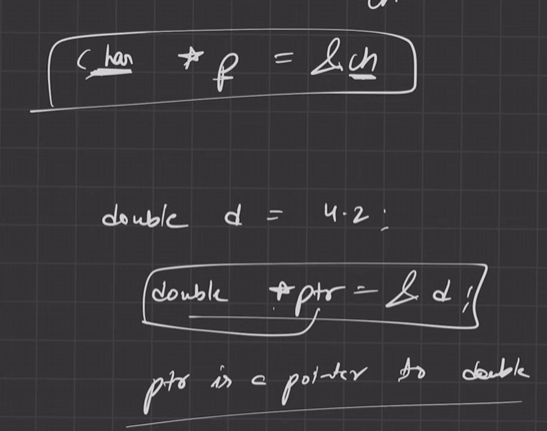 char *p = &ch
double d = 4.2;
double *ptr = &d;
ptr is a pointer to double